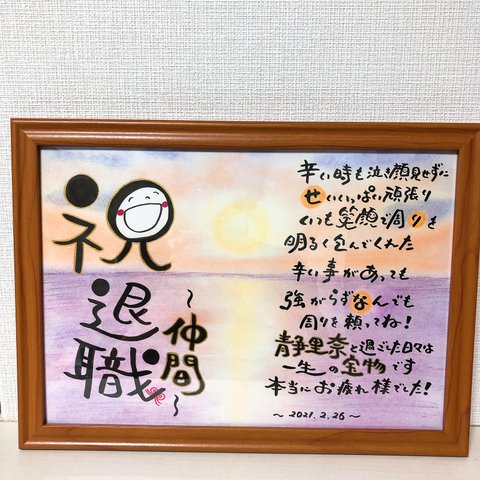 祝
退職
~仲間~
辛い時も泣き顔見せずに
せいいっぱい頑張り
いつも笑顔で周りを
明るく包んでくれた
辛い事があっても
強がらずなんでも
周りを頼ってね!
静里奈と過ごした日々は
一生の宝物です
本当にお疲れ様でした!
~2021.2.26~